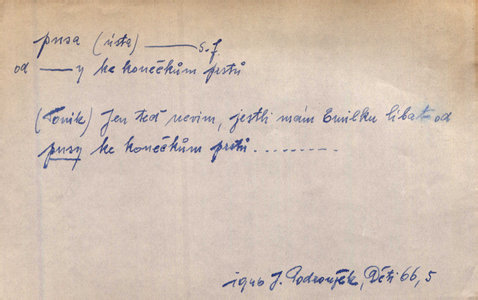 pusa (ústa) ——— s. f.
od —— y ke konečkům prstů
(Toník) Jen teď nevím, jestli mám Emilku líbat od
pusy ke konečkům prstů .........
1946 J. Podroužek, Děti 66, 5